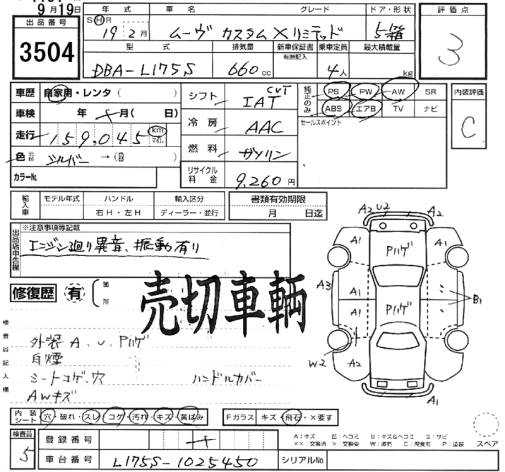 9月19日
出品番号
3504
年式 車名 グレード ドア・形状
SⒽR 19年2月 ムーヴ カスタム Xリミテッド 5箱
型式 排気量 新車保証書 有無記載 乗車定員 最大積載量
DBA-L175S 660cc 4人 kg
評価点
3
車歴 自家用・レンタ( )
車検 年 月( 日)
走行 159,045 km
色 元色 シルバー→( )
カラーNo.
シフト CVT IAT
冷房 AAC
燃料 ガソリン
リサイクル料金 9,260円
純正のみ PS PW AW SR
ABS エアB TV ナビ
セールスポイント
内装評価
C
輸入車 モデル年式 ハンドル 輸入区分 書類有効期限
年 右H・左H ディーラー・並行 月 日迄
出品店申告欄
※注意事項等記載
エンジン廻り異音、振動有り
修復歴 有 箇所
売切車輌
検査員記入欄
外装 A、U、Pハゲ
白煙
シートコゲ、穴 ハンドルカバー
AWキズ
A2 U2 A2
A1 Pハゲ A1
A3 A1 Pハゲ A1 B1
W2 A2 A1
内装シート 穴・破れ・スレ・コゲ・汚れ・キズ・黄ばみ Fガラス キズ・飛石・×要す
検査員
5
登録番号
車台番号 L175S-1025450 シリアルNo.
A:キズ E:ヘコミ U:キズ&ヘコミ S:サビ
スペア